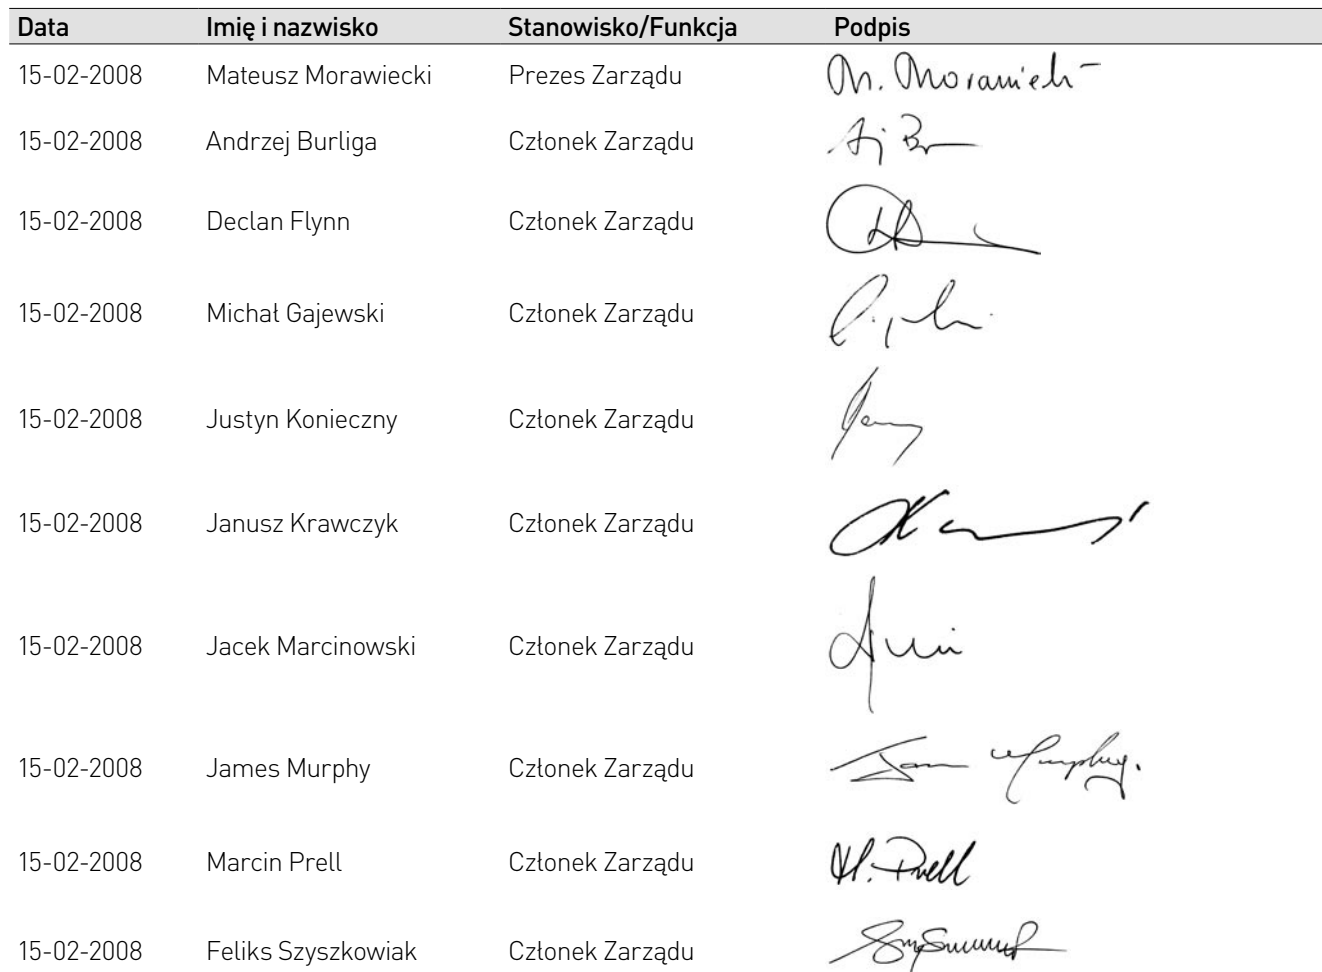 Data Imię i nazwisko Stanowisko/Funkcja Podpis
15-02-2008 Mateusz Morawiecki Prezes Zarządu M. Morawiecki
15-02-2008 Andrzej Burliga Członek Zarządu
15-02-2008 Declan Flynn Członek Zarządu
15-02-2008 Michał Gajewski Członek Zarządu
15-02-2008 Justyn Konieczny Członek Zarządu
15-02-2008 Janusz Krawczyk Członek Zarządu
15-02-2008 Jacek Marcinowski Członek Zarządu
15-02-2008 James Murphy Członek Zarządu James Murphy.
15-02-2008 Marcin Prell Członek Zarządu M. Prell
15-02-2008 Feliks Szyszkowiak Członek Zarządu